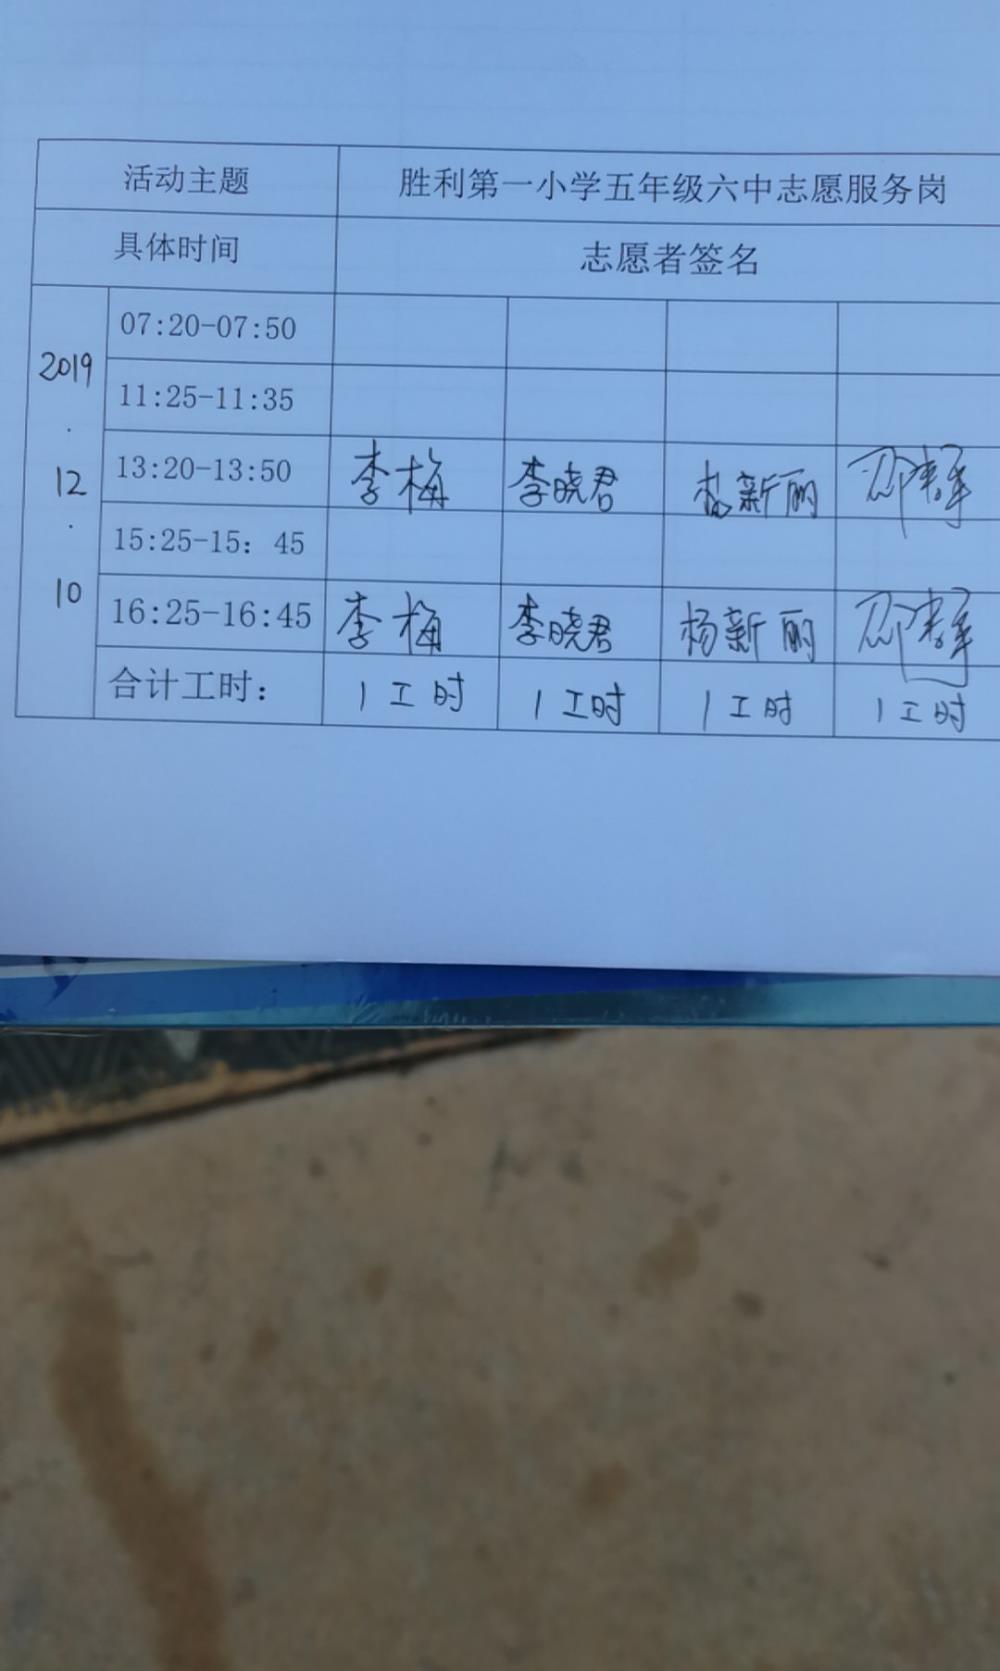 活动主题 胜利第一小学五年级六中志愿服务岗
具体时间 志愿者签名
2019.12.10
07:20-07:50
11:25-11:35
13:20-13:50 李梅 李晓君 杨新丽
15:25-15：45
16:25-16:45 李梅 李晓君 杨新丽
合计工时： 1工时 1工时 1工时 1工时